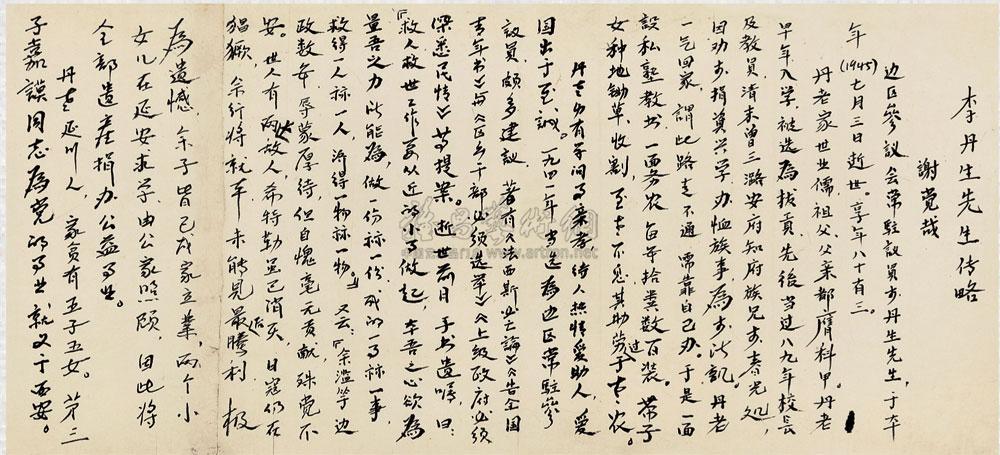 李丹生先生传略
谢觉哉
边区参议会常驻议员李丹生先生,于本
年(1945)七月三日逝世,享年八十有三。
丹老家世业儒,祖父、父亲都膺科甲。丹老
早年入学,被选为拔贡,先后当过八九年校长
及教员,清末曾三潞安府知府族兄李春光处,
因劝李捐资兴学办恤族事,为李所讥。丹老
一气回家,谓此路走不通,需靠自己办。于是一面
设私塾教书,一面务农,每年拾粪数百装。带子
女种地锄草,收割,至老不见其助劳过于老农。
丹老幼有学问,事亲孝,待人热情,爱助人,爱
国出于至诚。一九四一年,当选为边区常驻参
议员,颇多建议。著有《法西斯必亡论》《告全国
青年书》与《区乡干部必须选举》《上级政府必须
深悉民情》等提案。逝世前月,手书遗嘱,曰:
「救人救世工作要从近的小的做起,本吾之心欲为,
量吾之力所能为,做一份称一份,成的一事称一事,
救得一人称一人,济得一物称一物。」又云:「余滥竽边
政数年,辱蒙厚待,但自愧毫无贡献,殊觉不
安。世人有两大敌人,希特勒虽已消灭,日寇仍在
猖獗,余行将就平,未能见最后胜利,极
为遗憾,余子皆已成家立业,两个小
女儿在延安求学,由公家照顾,因此将
全部遗产捐办公益事业。
丹老延川人,家员有五子五女。第三
子嘉谟同志为党的事业就义于西安。